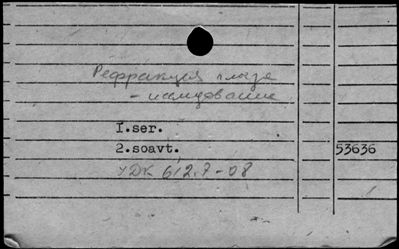 Рефракция глаза
- исследование
I.ser.
2.soavt. 53636
УДК 612.8-08